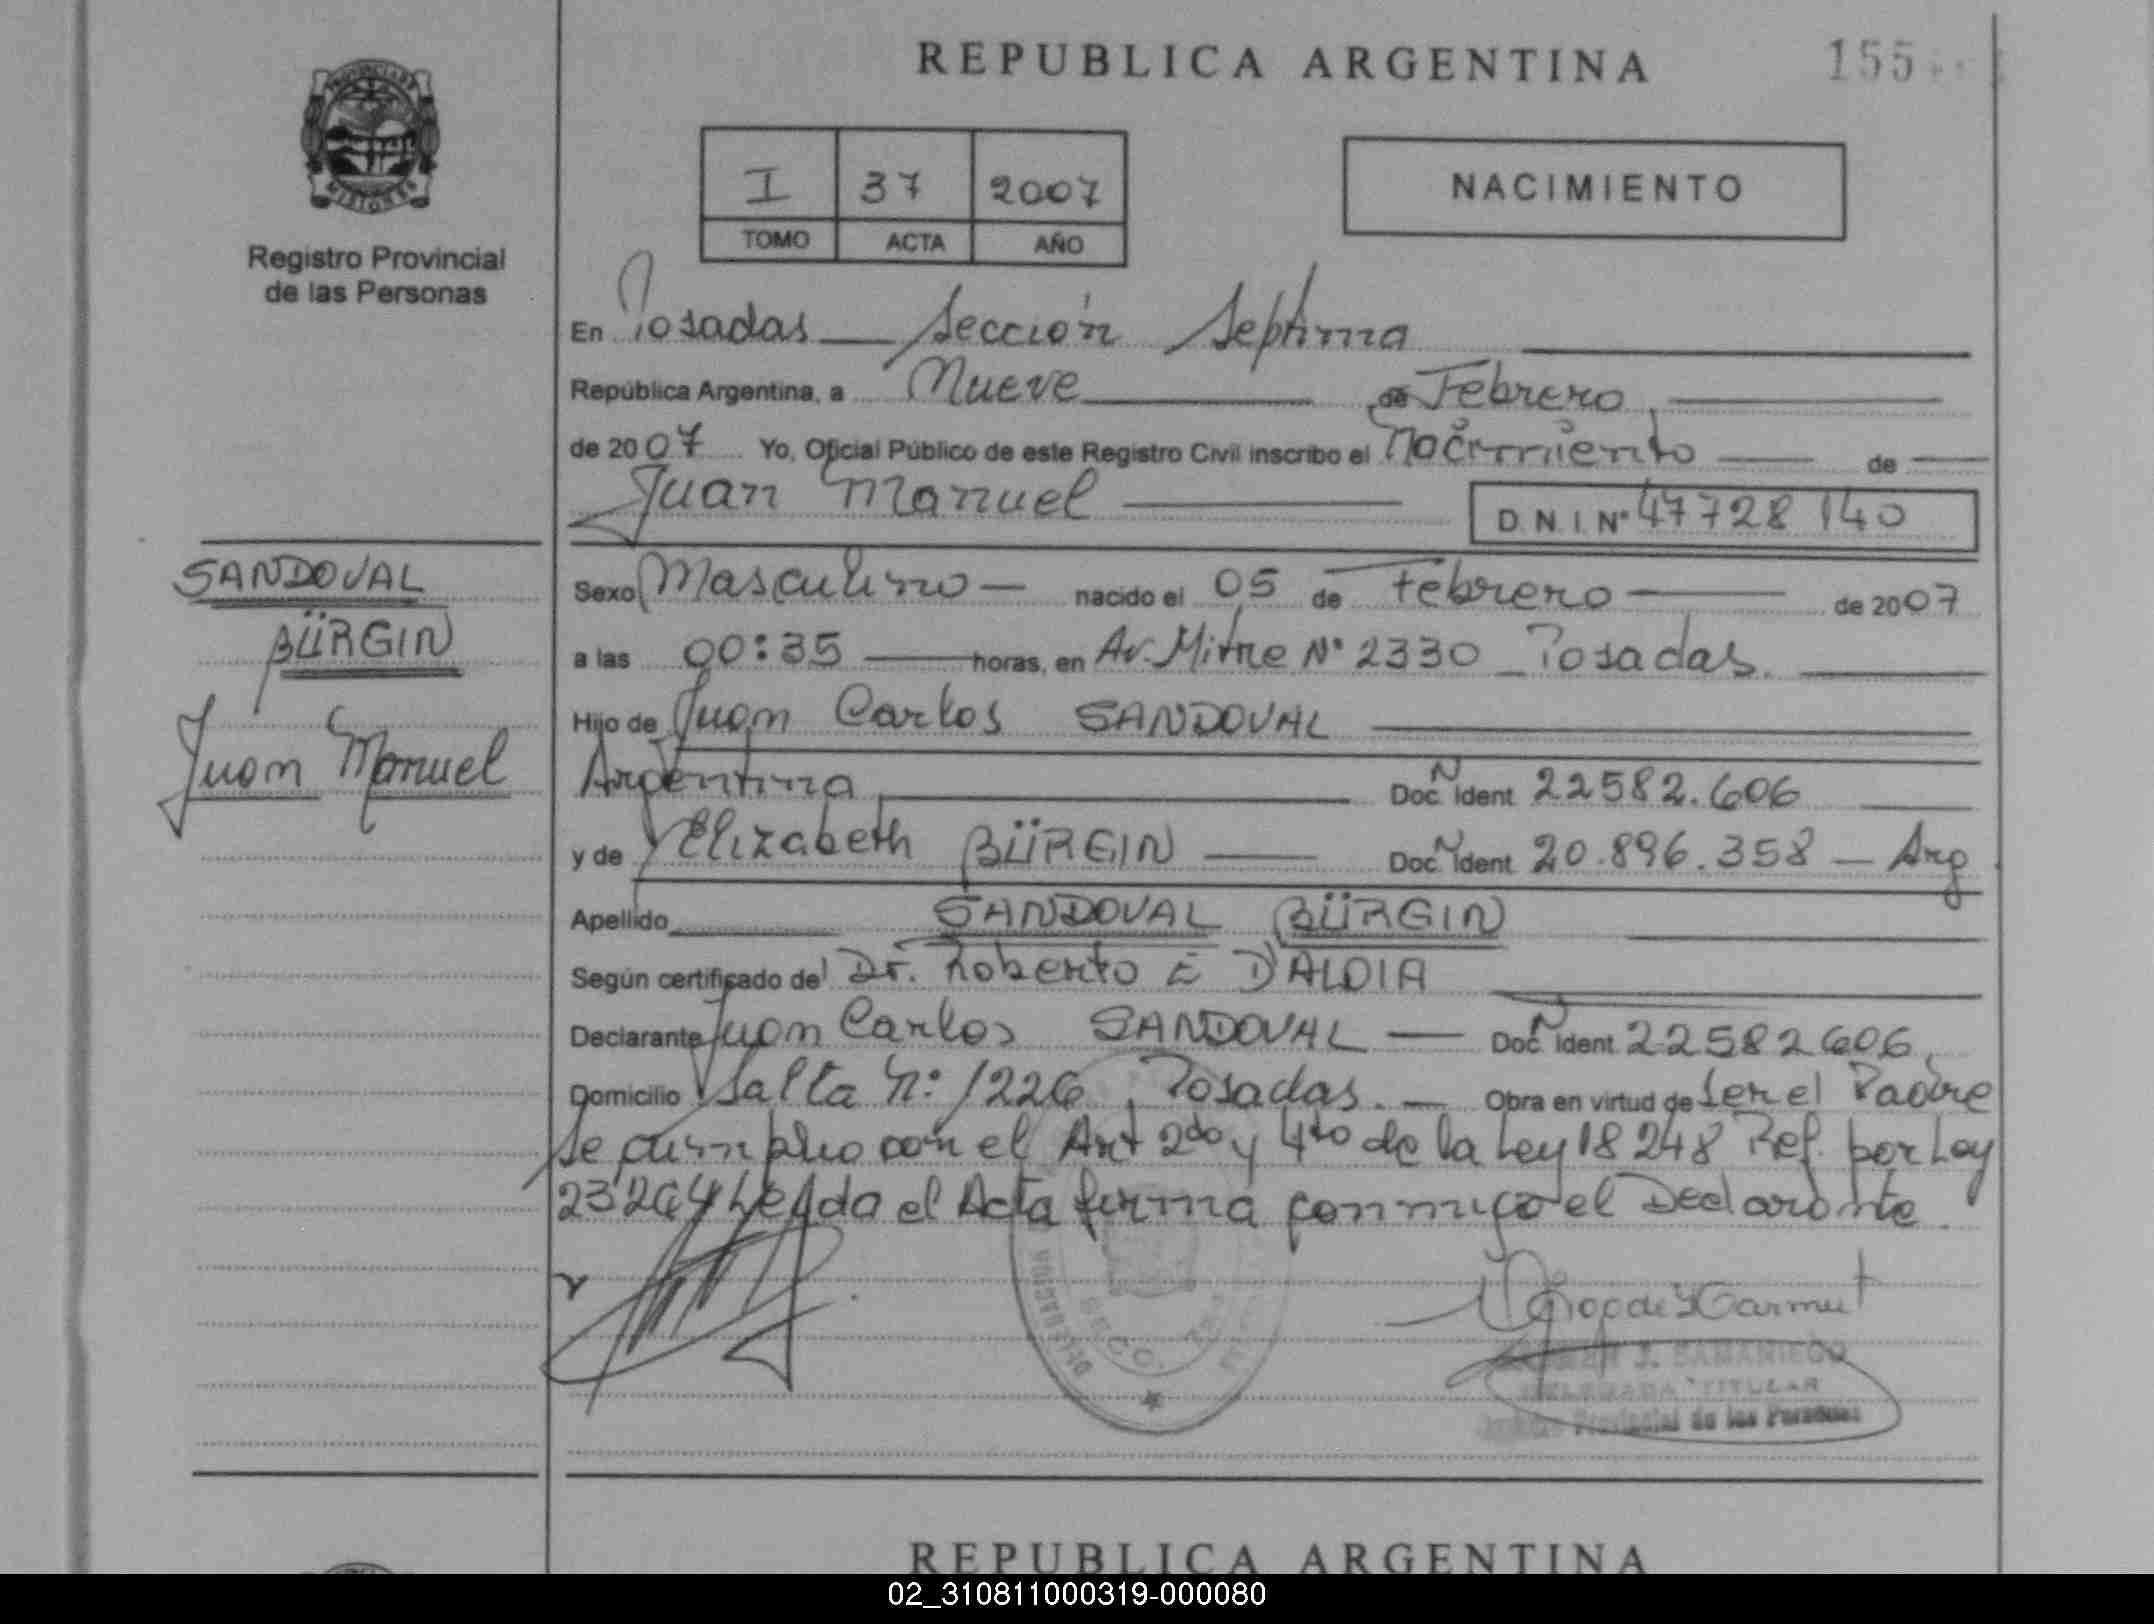 REPUBLICA ARGENTINA
155
PROVINCIA DE
MISIONES
Registro Provincial
de las Personas
I 37 2007
TOMO ACTA AÑO
NACIMIENTO
En Posadas — Sección Septima
República Argentina, a Nueve de Febrero,
de 2007 Yo, Oficial Público de este Registro Civil inscribo el Nacimiento de
Juan Manuel D.N.I. Nº 47728140
SANDOVAL
BÜRGIN
Juan Manuel
Sexo Masculino — nacido el 05 de Febrero — de 2007
a las 00:35 — horas, en Av. Mitre Nº 2330 _ Posadas.
Hijo de Juan Carlos SANDOVAL
Argentina Doc. Ident 22582.606
y de Elizabeth BÜRGIN — Doc. Ident 20.896.358 — Arg
Apellido SANDOVAL BÜRGIN
Según certificado del Dr. Roberto E D'ALDIA
Declarante Juan Carlos SANDOVAL — Doc. Ident 22582606,
Domicilio Salta Nº: 1226, Posadas. — Obra en virtud de Ser el Padre
Se cumplio con el Art 2do y 4to de la Ley 18248 Ref. por Ley
23264 Leída el Acta firma conmigo el Declarante.
J. SAMANIEGO
DELEGADA TITULAR
Provincial de las Personas
REPUBLICA ARGENTINA
02_310811000319-000080